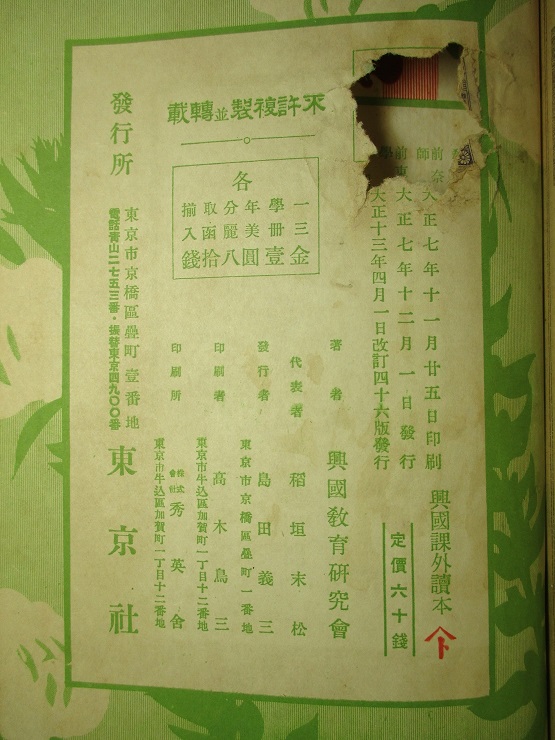 大正七年十一月廿五日印刷
大正七年十二月一日發行
大正十三年四月一日改訂四十六版發行
興國課外讀本
定價六十錢
著者 興國敎育硏究會
代表者 稻垣末松
發行者 東京市京橋區疊町一番地 島田義三
印刷者 東京市牛込區加賀町一丁目十二番地 高木鳥三
印刷所 東京市牛込區加賀町一丁目十二番地 株式會社 秀英舍
不許複製並轉載
各
一學年分取揃
三冊美麗函入
金壹圓八拾錢
發行所
東京市京橋區疊町壹番地
電話靑山二七五三番・振替東京四九〇〇番
東京社